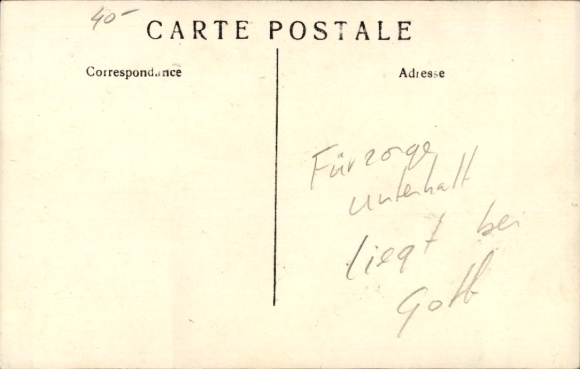 40-
CARTE POSTALE
Correspondance
Adresse
Fürzorge
unterhalt
liegt bei
Gott